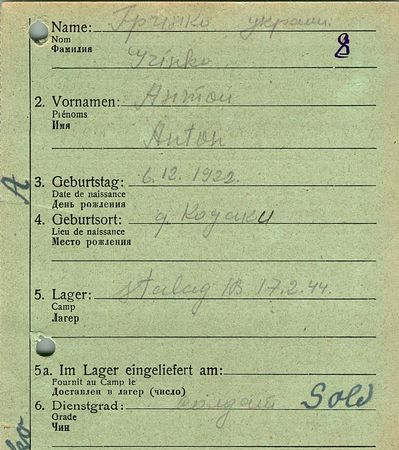 Name: Гринко украин.
Nom
Фамилия
Grinko
8
2. Vornamen: Антон
Prénoms
Имя
Anton
3. Geburtstag: 6.12.1922.
Date de naissance
День рождения
4. Geburtsort: д. Кодаки
Lieu de naissance
Место рождения
5. Lager: Stalag 17.2.44.
Camp
Лагер
5a. Im Lager eingeliefert am:
Fournit au Camp le
Доставлен в лагер (число)
6. Dienstgrad: солдат Sold
Grade
Чин
A
ko